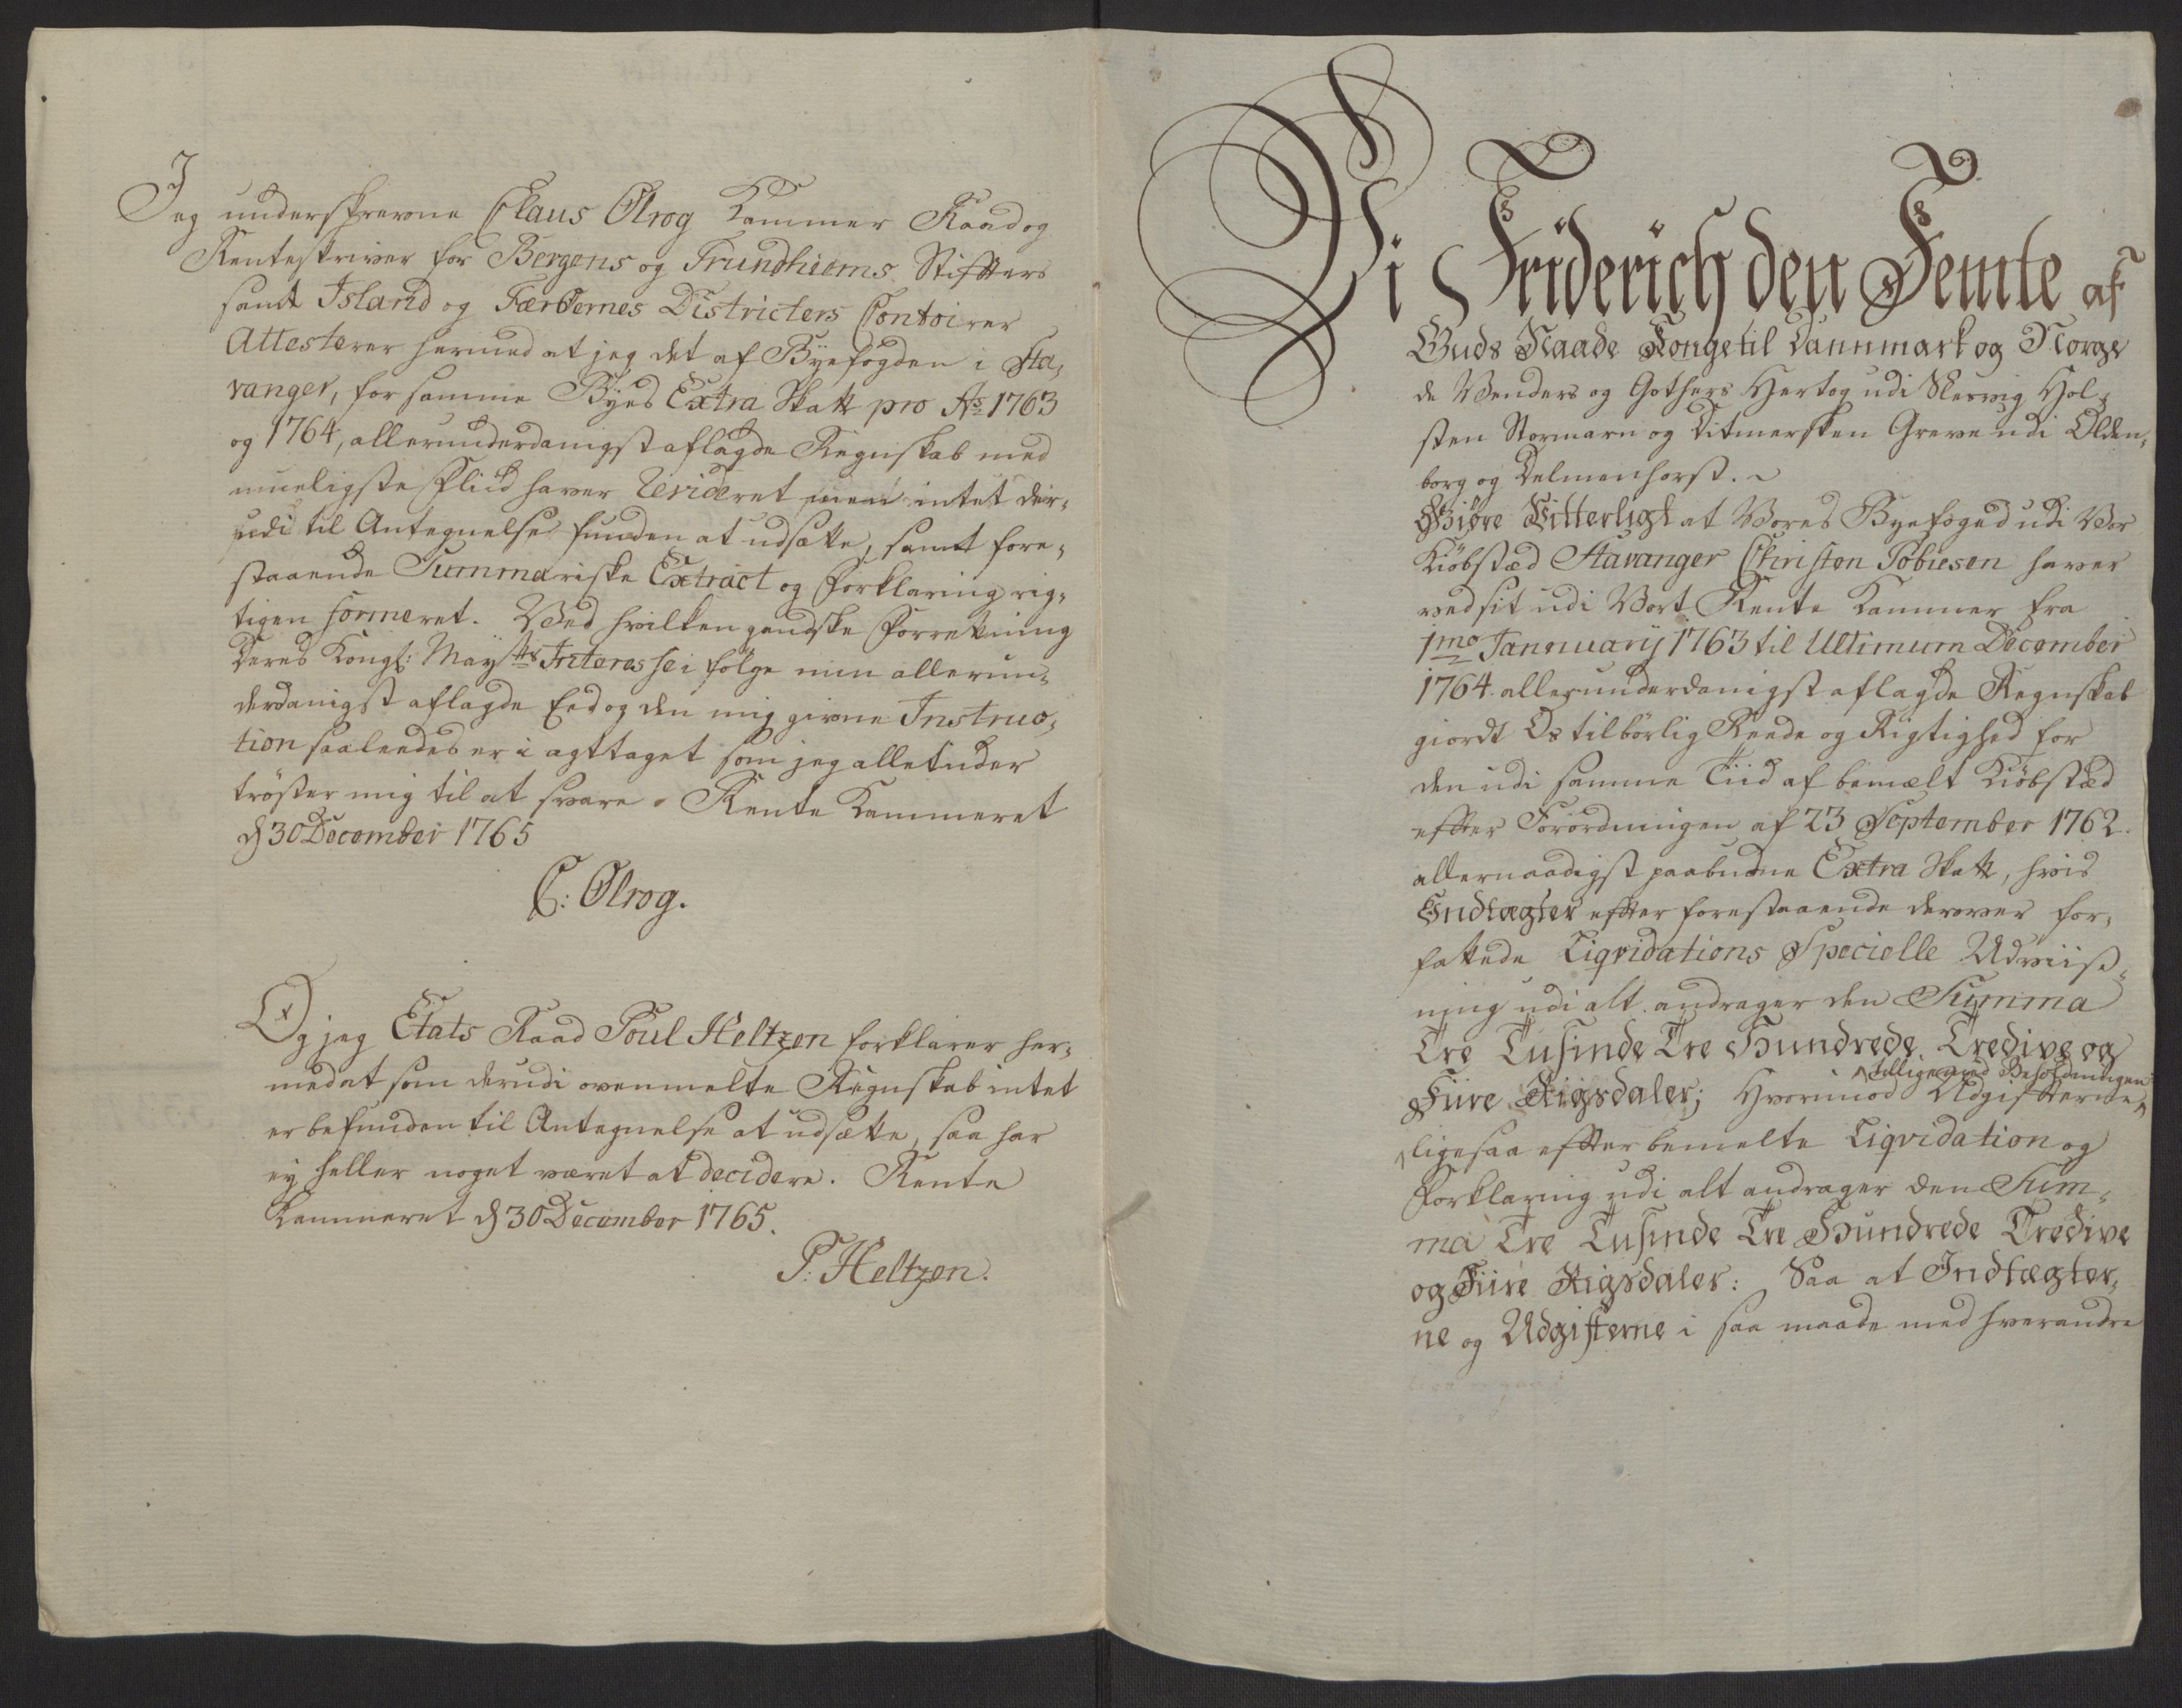 Jeg underskrevne Claus Ølrog Kammer Raad og
Renteskriver for Bergens og Trundhiems Stifters
samt Island og Færøernes Districters Contoirer
Attesterer hermed at jeg det af Byefogden i Sta,
vanger, for samme Byes Extra Skatt pro Ao 1763
og 1764, allerunderdanigst aflagde Regnskab med
mueligste Fliid haver Revideret men intet der,
udi til Antegnelse funden at udsætte, samt fore,
staaende Summariske Extract og Forklaring rig,
tigen formeret. Ved hvilken gandske Forretning
Deres Kongl: Mayts Interesse i følge min allerun,
derdanigst aflagde Eed og den mig givne Instruc,
tion saaleedes er i agttaget som jeg alletider
trøster mig til at svare. Rente Kammeret
d 30 December 1765
C: Ølrog.
Og jeg Etats Raad Poul Heltzen forklarer her,
med at som derudi ovenmelte Regnskab intet
er befunden til Antegnelse at udsætte, saa har
ey heller noget været at decidere. Rente
Kammeret d 30 December 1765.
P: Heltzen.
Vi Friderich den Femte af
Guds Naade Konge til Dannmark og Norge
de Venders og Gothers Hertog udi Slesvig Hol,
sten Stormarn og Ditmersken Greve udi Olden,
borg og Delmenhorst.
Giøre Vitterligt at Vores Byefoged udi Vor
Kiøbstæd Stavanger Christen Tobiesen haver
ved sit udi Vort Rente Kammer fra
1mo Januarij 1763 til Ultimum December
1764. allerunderdanigst aflagde Regnskab
giordt Os tilbørlig Reede og Rigtighed for
den udi samme Tiid af bemælt Kiøbstæd
effter Forordningen af 23 September 1762.
allernaadigst paabudne Extra Skatt, hvis
Indtægter effter forestaaende derover for,
fattede Liqvidations Specielle Udviis,
ning udi alt andrager den Summa
Tre Tusinde Tre Hundrede Tredive og
Fiire Rigsdaler; Hvorimod Udgifterne
tilligemed Beholdningen
ligesaa effter bemelte Liqvidation og
Forklaring udi alt andrager den Sum,
ma Tre Tusinde Tre Hundrede Tredive
og Fiire Rigsdaler: Saa at Indtægter,
ne og Udgifterne i saa maade med hverandre